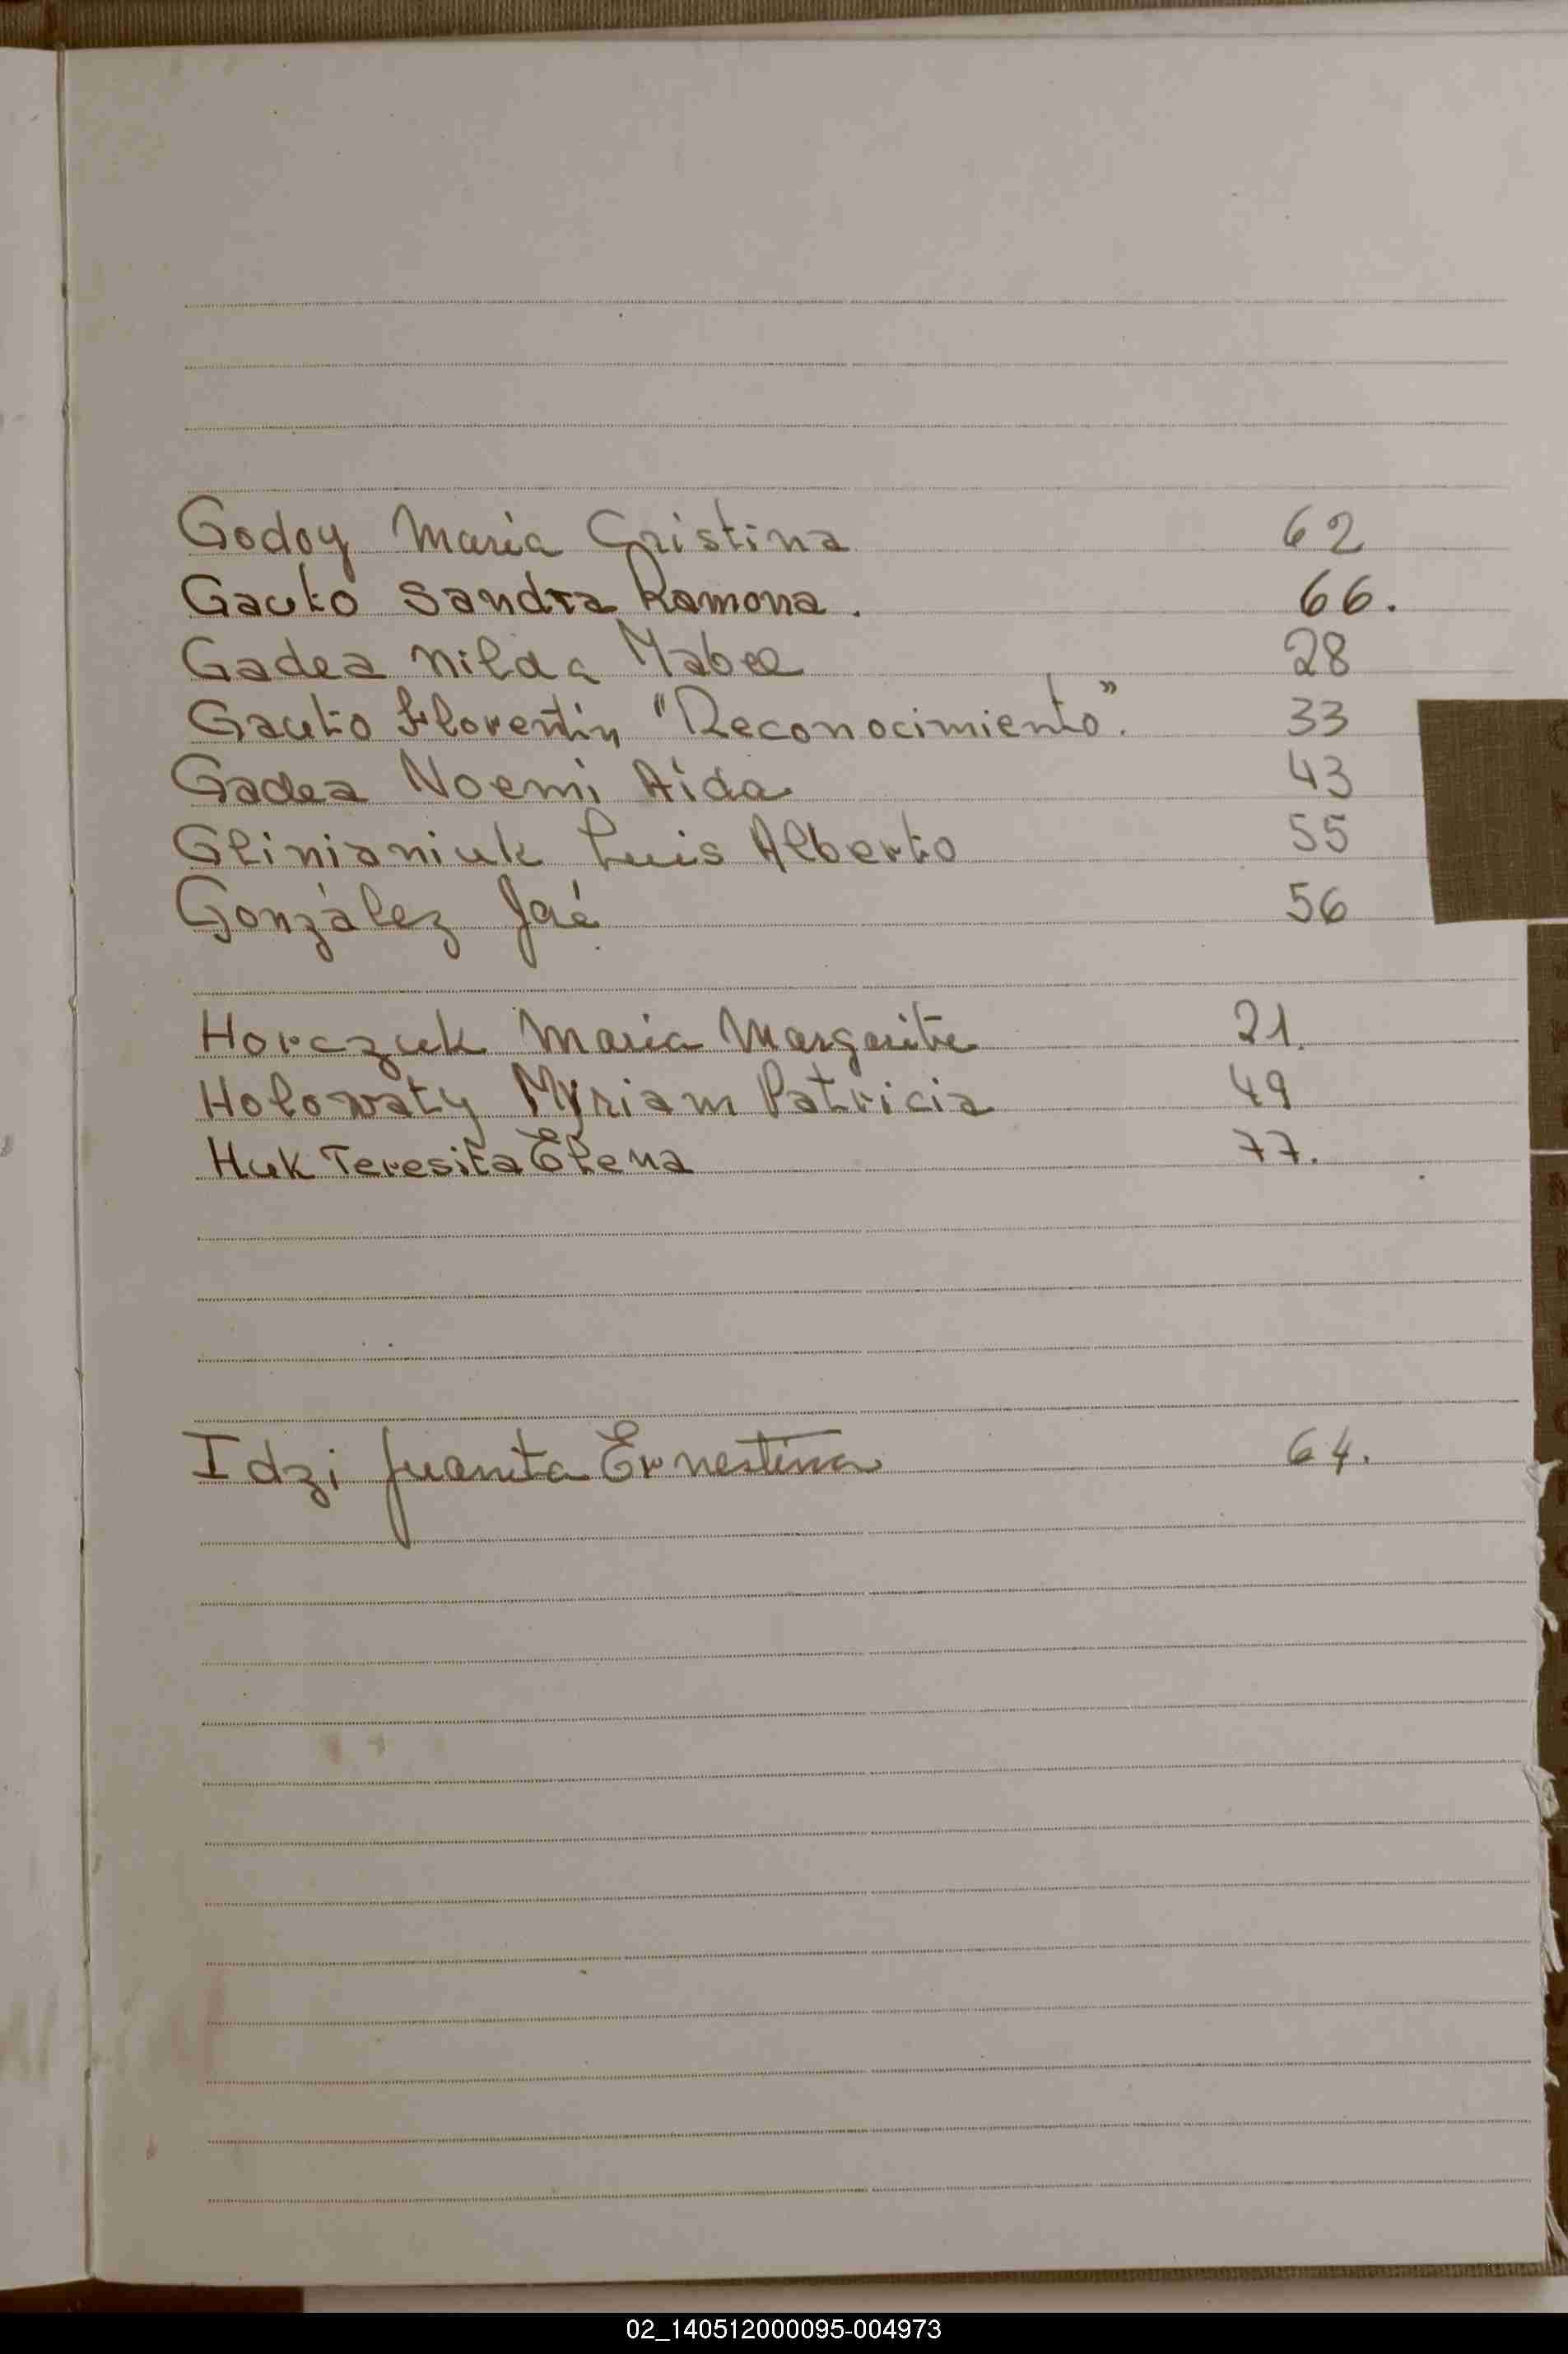 Godoy Maria Cristina 62
Gauto Sandra Ramona. 66.
Gadea Nilda Mabel 28
Gauto Florentin "Reconocimiento". 33
Gadea Noemi Aida 43
Glinianiuk Luis Alberto 55
González José 56
Horczuk Maria Margarita 21.
Holowaty Myriam Patricia 49
Huk Teresita Elena 77.
Idzi Juanita Ernestina 64.
02_140512000095-004973